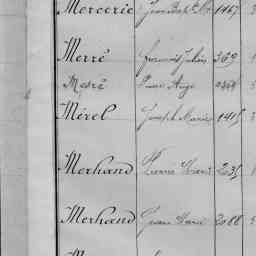 Mercerie Jean Bapt. 1467
Merré François Julien 369
Mesré Pierre Ange
Mérel Joseph Marie 1415
Merhand Pierre Marie 2035
Merhand Jean Marie 2088